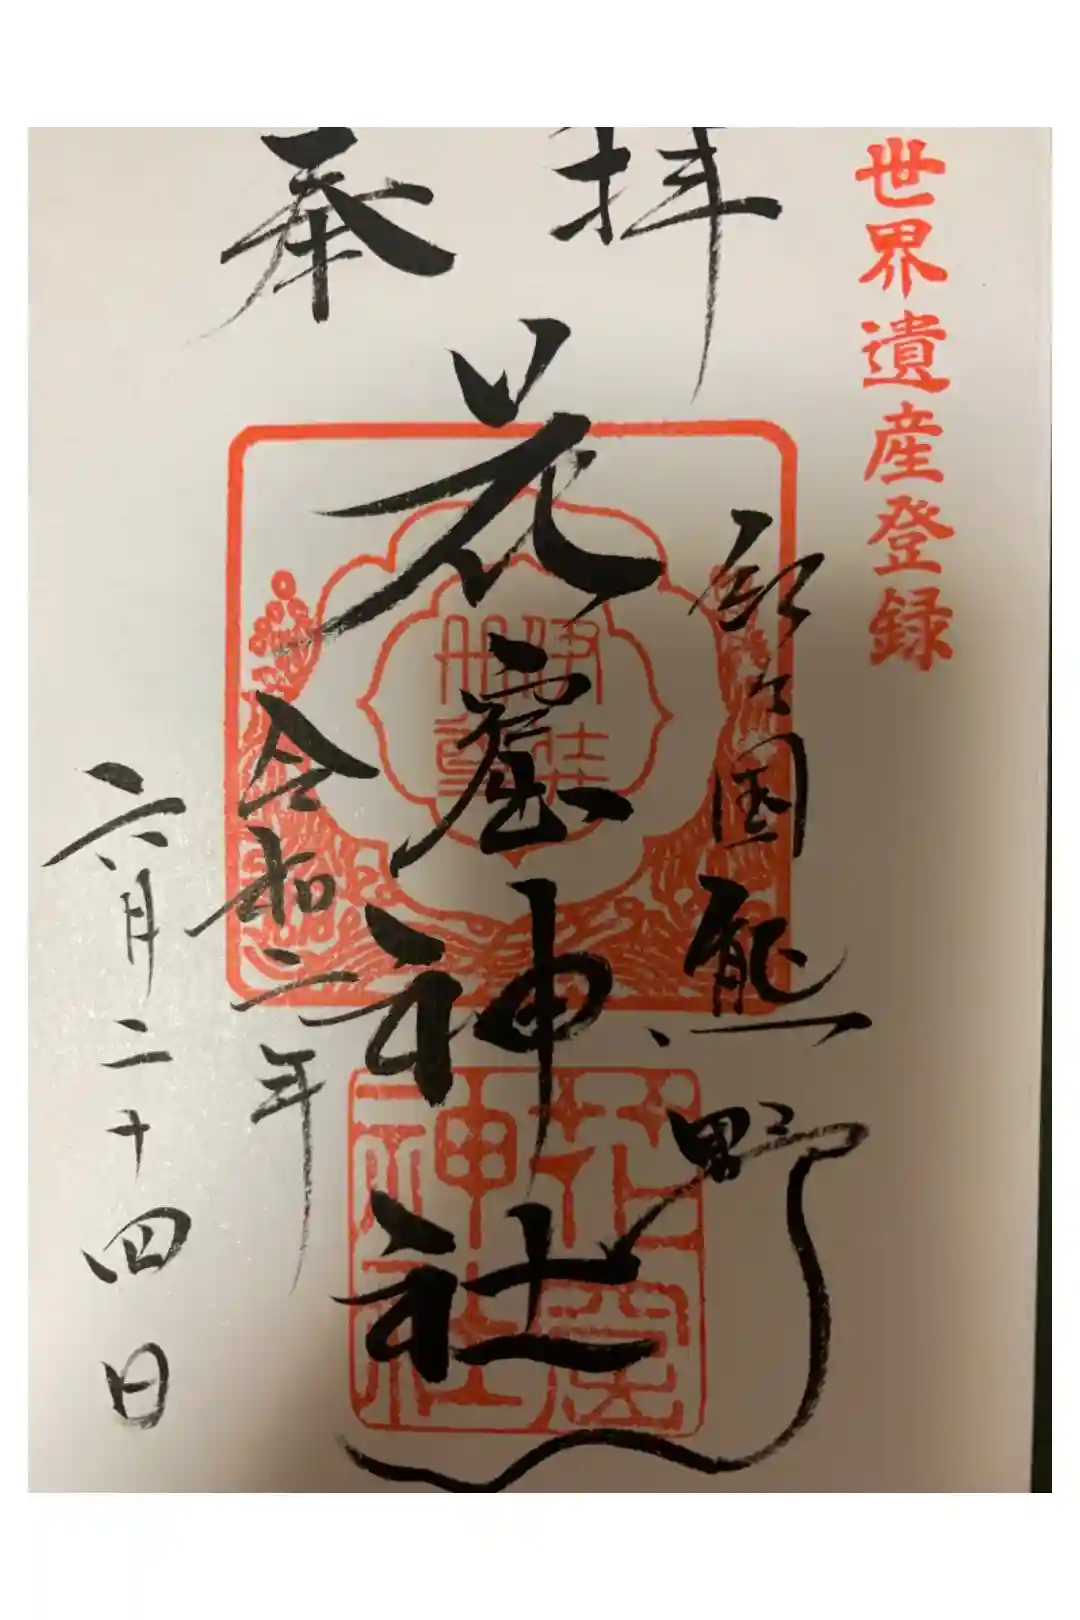 奉拝
世界遺産登録
国熊野
花窟神社
令和二年
六月二十四日
伊弉冊尊
花窟神社